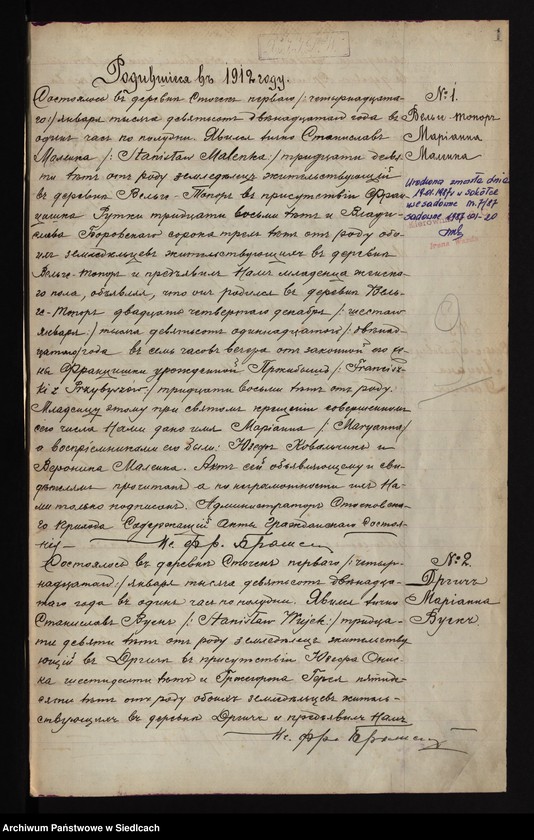 1
Родившіеся въ 1912 году.
№ 1.
Вельг-Топоръ
Маріанна
Малинка
Состоялось въ деревни Стоэкъ перваго /: четырнадцата-
го :/ января тысяча девятьсотъ двѣнадцатаго года въ
одинъ часъ по полудни. Явился лично Станиславъ
Малинка /: Stanisław Malenka :/ тридцати девя-
ти лѣтъ отъ роду земледѣлецъ жительствующій
въ деревни Вельго-Топоръ въ присутствіи Фран-
цишка Рутки тридцати восьми лѣтъ и Влади-
слава Боровскаго сорока трехъ лѣтъ отъ роду обо-
ихъ земледѣльцевъ жительствующихъ въ деревни
Вельго-Топоръ и предъявилъ Намъ младенца женска-
го пола, объявляя, что онъ родился въ деревни Вель-
го-Топоръ двадцать четвертаго декабря /: шестаго
января :/ тысяча девятьсотъ одиннадцатаго /: двѣнад-
цатаго/ года въ семь часовъ вечера отъ законной его же-
ны Францишки урожденной /: Francisz-
ki z Przybyszów :/ тридцати восьми лѣтъ отъ роду.
Младенцу этому при святомъ крещеніи совершенномъ
сего числа Нами дано имя Маріанна /: Maryanna :/
а воспріемниками его были: Іозефъ Ковальчикъ и
Вероника Малинка. Актъ сей объявляющему и сви-
дѣтелямъ прочитанъ а по неграмотности ихъ На-
ми только подписанъ. Администраторъ Стоковска-
го прихода Содержащій Акты Гражданскаго Состоя-
нія — Кс. Фр.
Urodzona zmarła dnia
№ 2.
Дргичъ
Маріанна
Вуекъ
Состоялось въ деревни Стоэкъ перваго /: четыр-
надцатаго :/ января тысяча девятьсотъ двѣнадца-
таго года въ одинъ часъ по полудни. Явился лично
Станиславъ Вуекъ /: Stanisław Wujek :/ тридца-
ти девяти лѣтъ отъ роду земледѣлецъ жительству-
ющій въ Дргичъ въ присутствіи Іозефа Онис-
ка шестидесяти лѣтъ и Гржегоржа пятиде-
сяти лѣтъ отъ роду обоихъ земледѣльцевъ житель-
ствующихъ въ деревни Дргичъ и предъявилъ Намъ
Кс. Фр.
Archiwum Państwowe w Siedlcach